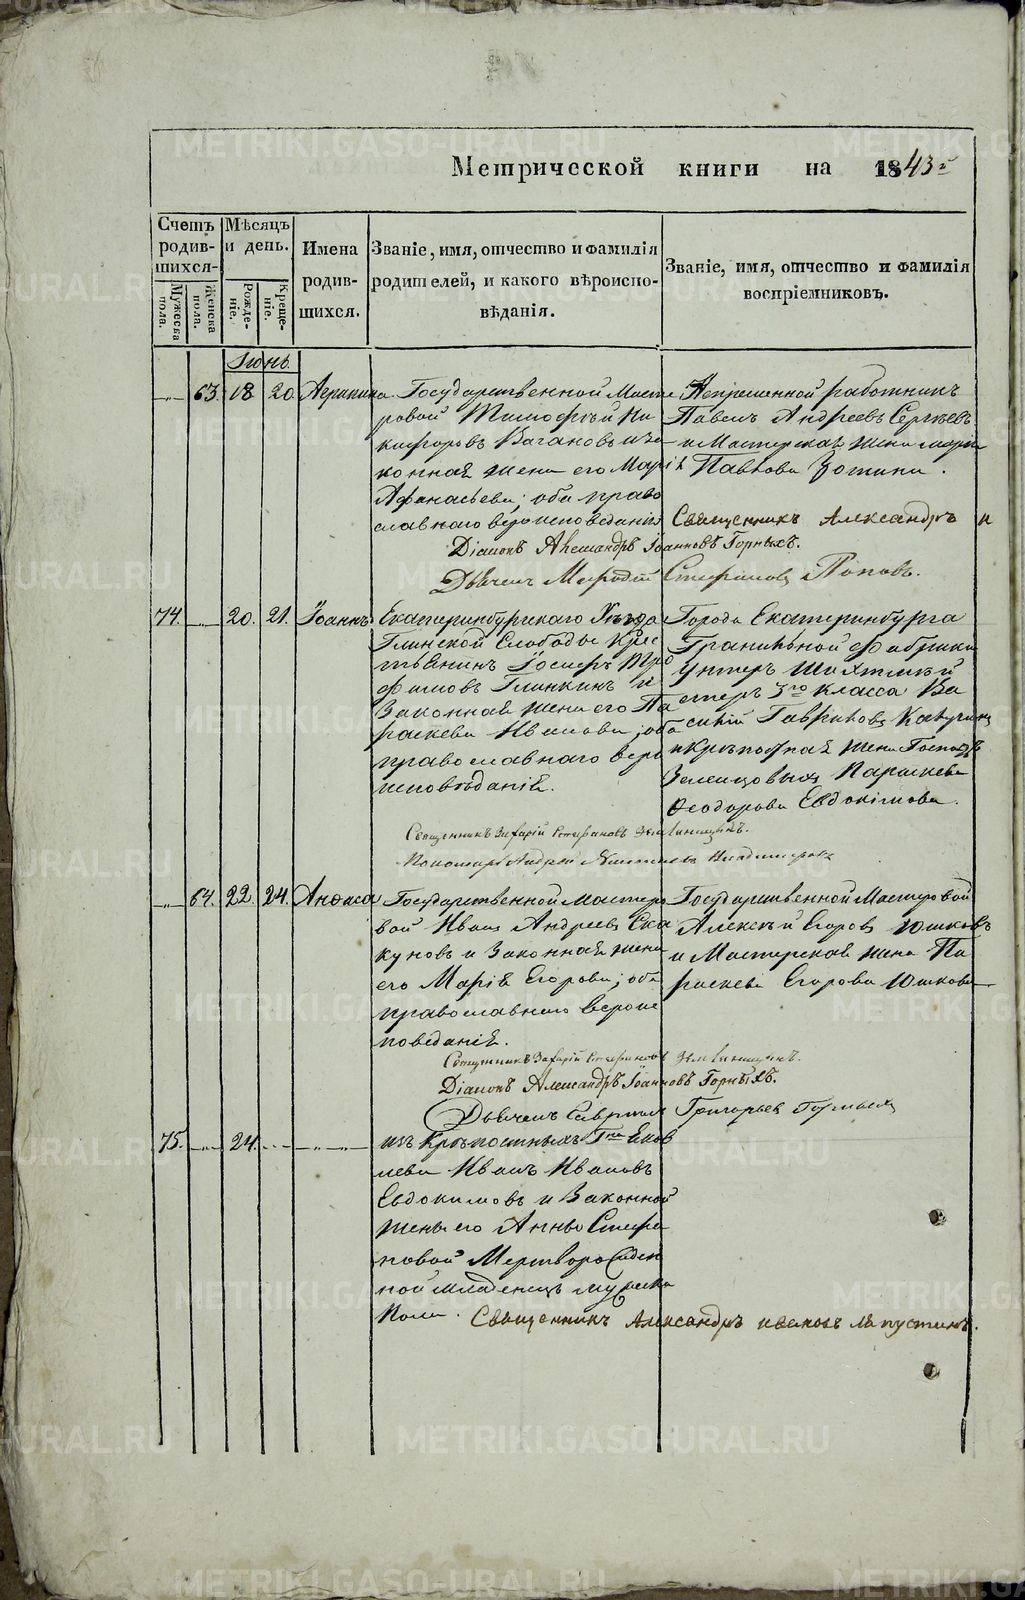 METRIKI.GASO-URAL.RU
Метрической книги на 1843й
Счетъ родив-шихся.
Мужеска пола.
Женска пола.
Мѣсяцъ и день.
Рожде-ніе.
Креще-ніе.
Имена родив-шихся.
Званіе, имя, отчество и фамилія родителей, и какого вѣроиспо-вѣданія.
Званіе, имя, отчество и фамилія воспріемниковъ.
Іюнь.
63. 18 20.
Государственной Масте
ровой Тимофѣй Ни
кифоровъ Вагановъ и за
конная жена его Марія
Афанасьева; оба право
славнаго вероисповеданія
Непременной работникъ
Павелъ Андреевъ Сергѣевъ
и Мастерская жена Марѳа
Павлова Зотина.
Священникъ Александръ
Діаконъ Александръ Іоанновъ Горныхъ.
Дьячекъ Мефодій Стефановъ Поповъ.
74. 20. 21. Іоаннъ
Екатеринбургскаго Уѣзда
Глинской Слободы Крес
тьянинъ Іосифъ Тро
фимовъ Глинкинъ и
Законная жена его Па
раскева Иванова; оба
православнаго веро
исповѣданія.
Города Екатеринбурга
Гранильной Фабрики
Унтеръ Шихтмей
стеръ 3го класса Ва
силій Гавриловъ
и Крѣпостная жена Господъ
Зеленцовыхъ Параскева
Ѳеодорова Евдокимова.
Священникъ Захарій Стефановъ
Пономарь Андрей
64. 22. 24.
Государственной мастеро
вой Иванъ Андреевъ
куновъ и Законная жена
его Марія Егорова; оба
православнаго вероис
поведанія.
Государственной Мастеровой
Алексѣй Егоровъ Юшковъ
и Мастерская жена Па
раскева Егорова Юшкова
Священникъ Захарій Стефановъ
Діаконъ Александръ Іоанновъ Горныхъ.
Дьячекъ Гавріилъ Григорьевъ Горныхъ
75. 24.
изъ Крѣпостныхъ Гна Яков
лева Иванъ Ивановъ
Евдокимовъ и Законной
жены его Анны Стефа
новой Мертворожден
ной младенецъ мужеска
Пола.
Священникъ Александръ Ивановъ Лапустинъ.